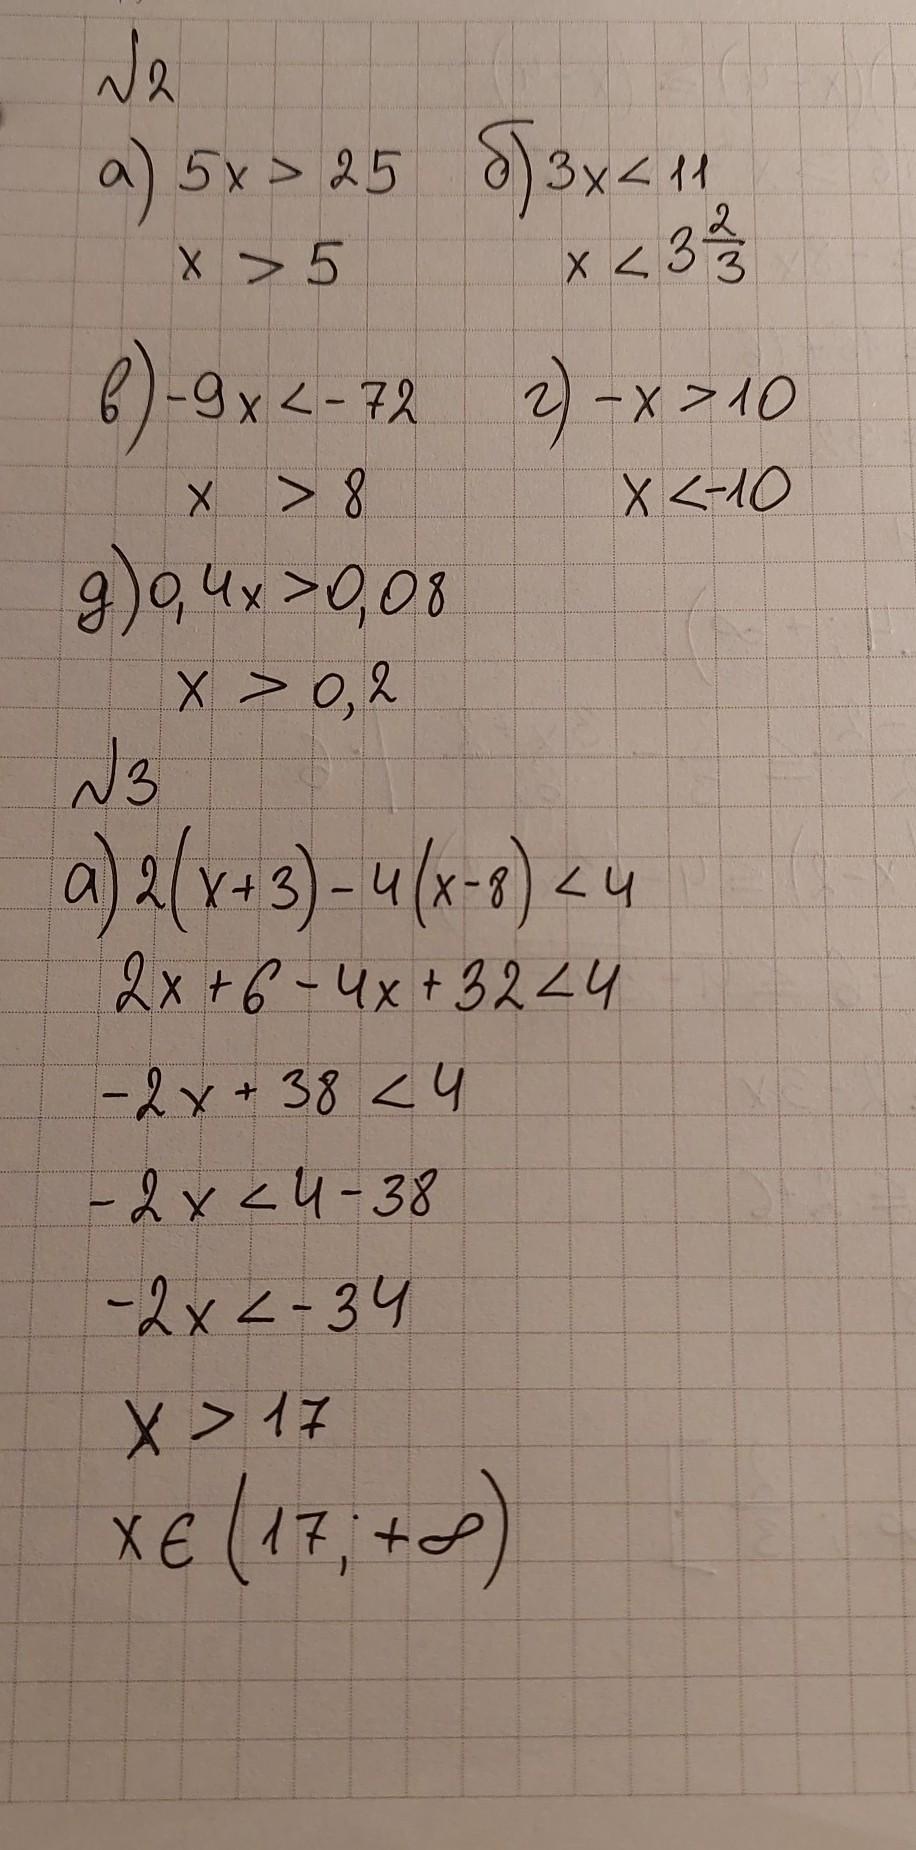 №2
а) 5x > 25 б) 3x < 11
x > 5 x < 3 2/3
в) -9x < -72 г) -x > 10
x > 8 x < -10
д) 0,4x > 0,08
x > 0,2
№3
а) 2(x+3) - 4(x-8) < 4
2x + 6 - 4x + 32 < 4
-2x + 38 < 4
-2x < 4 - 38
-2x < -34
x > 17
x ∈ (17; +∞)